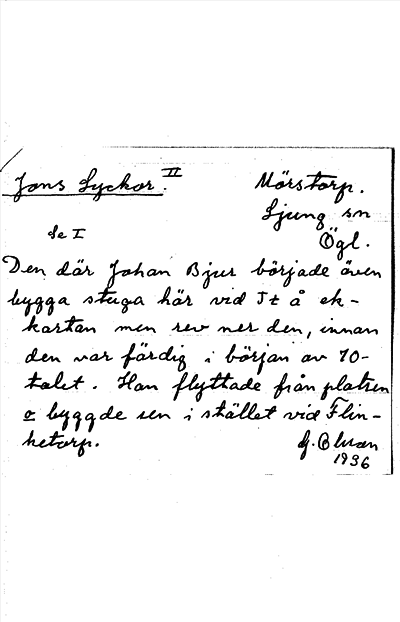 Jons Lyckor. II
Mörstorp.
Ljung sn
Ögl.
se I
Den där Johan Bjur började även
bygga stuga här vid St å ek-
kartan men rev ner den, innan
den var färdig i början av 70-
talet. Han flyttade från platsen
o byggde sen i stället vid Flin-
ketorp.
1936